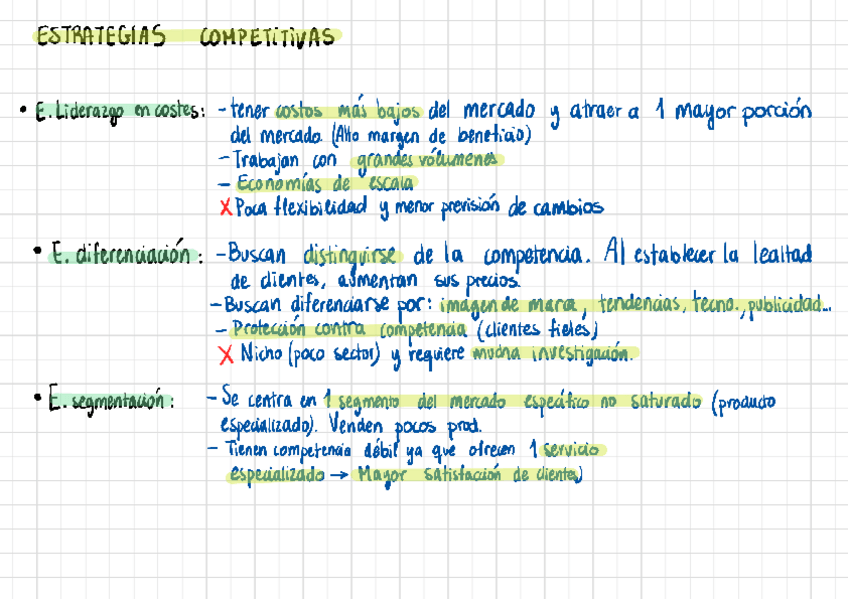 ESTRATEGIAS COMPETITIVAS
• E. Liderazgo en costes: - tener costos más bajos del mercado y atraer a 1 mayor porción
del mercado. (Alto margen de beneficio)
- Trabajan con grandes vólumenes
- Economías de escala
X Poca flexibilidad y menor previsión de cambios
• E. diferenciación: - Buscan distinguirse de la competencia. Al establecer la lealtad
de clientes, aumentan sus precios.
- Buscan diferenciarse por: imagen de marca, tendencias, tecno., publicidad...
- Protección contra competencia (clientes fieles)
X Nicho (poco sector) y requiere mucha investigación.
• E. segmentación: - Se centra en 1 segmento del mercado específico no saturado (producto
especializado). Venden pocos prod.
- Tienen competencia débil ya que ofrecen 1 servicio
especializado → Mayor satisfacción de clientes)